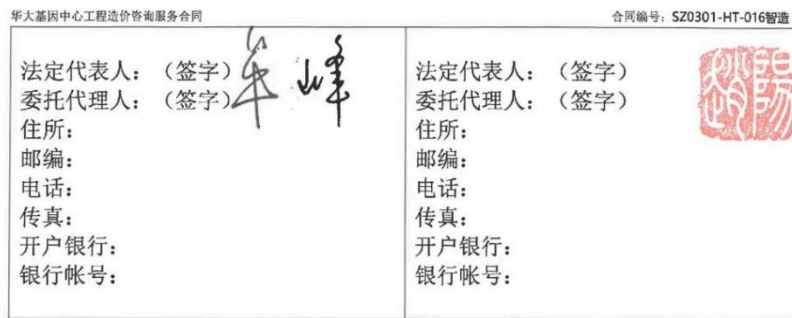 华大基因中心工程造价咨询服务合同
合同编号：SZ0301-HT-016智造
法定代表人：（签字）
委托代理人：（签字）
住所：
邮编：
电话：
传真：
开户银行：
银行帐号：
法定代表人：（签字）
委托代理人：（签字）
住所：
邮编：
电话：
传真：
开户银行：
银行帐号：